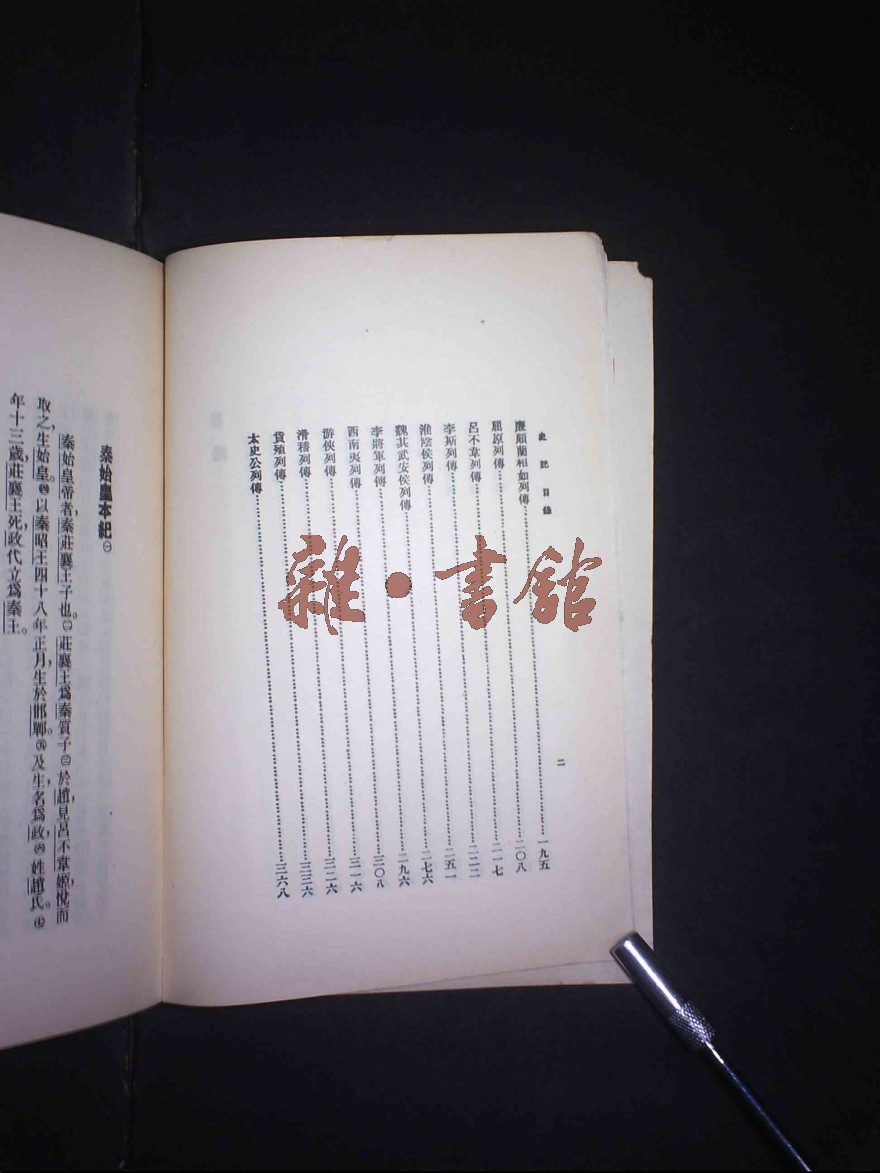 史記目錄
二
廉頗藺相如列傳……一九五
屈原列傳……二〇八
呂不韋列傳……二一七
李斯列傳……二二二
淮陰侯列傳……二五一
魏其武安侯列傳……二七六
李將軍列傳……二九六
西南夷列傳……三〇八
游俠列傳……三一六
滑稽列傳……三二六
貨殖列傳……三三六
太史公列傳……三六八
秦始皇本紀㊀
秦始皇帝者,秦莊襄王子也。㊁莊襄王爲秦質子㊂於趙,見呂不韋姬,悅而
取之,生始皇。㊃以秦昭王四十八年正月,生於邯鄲。㊄及生,名爲政,㊅姓趙氏。㊆
年十三歲,莊襄王死,政代立爲秦王。
雜·書館